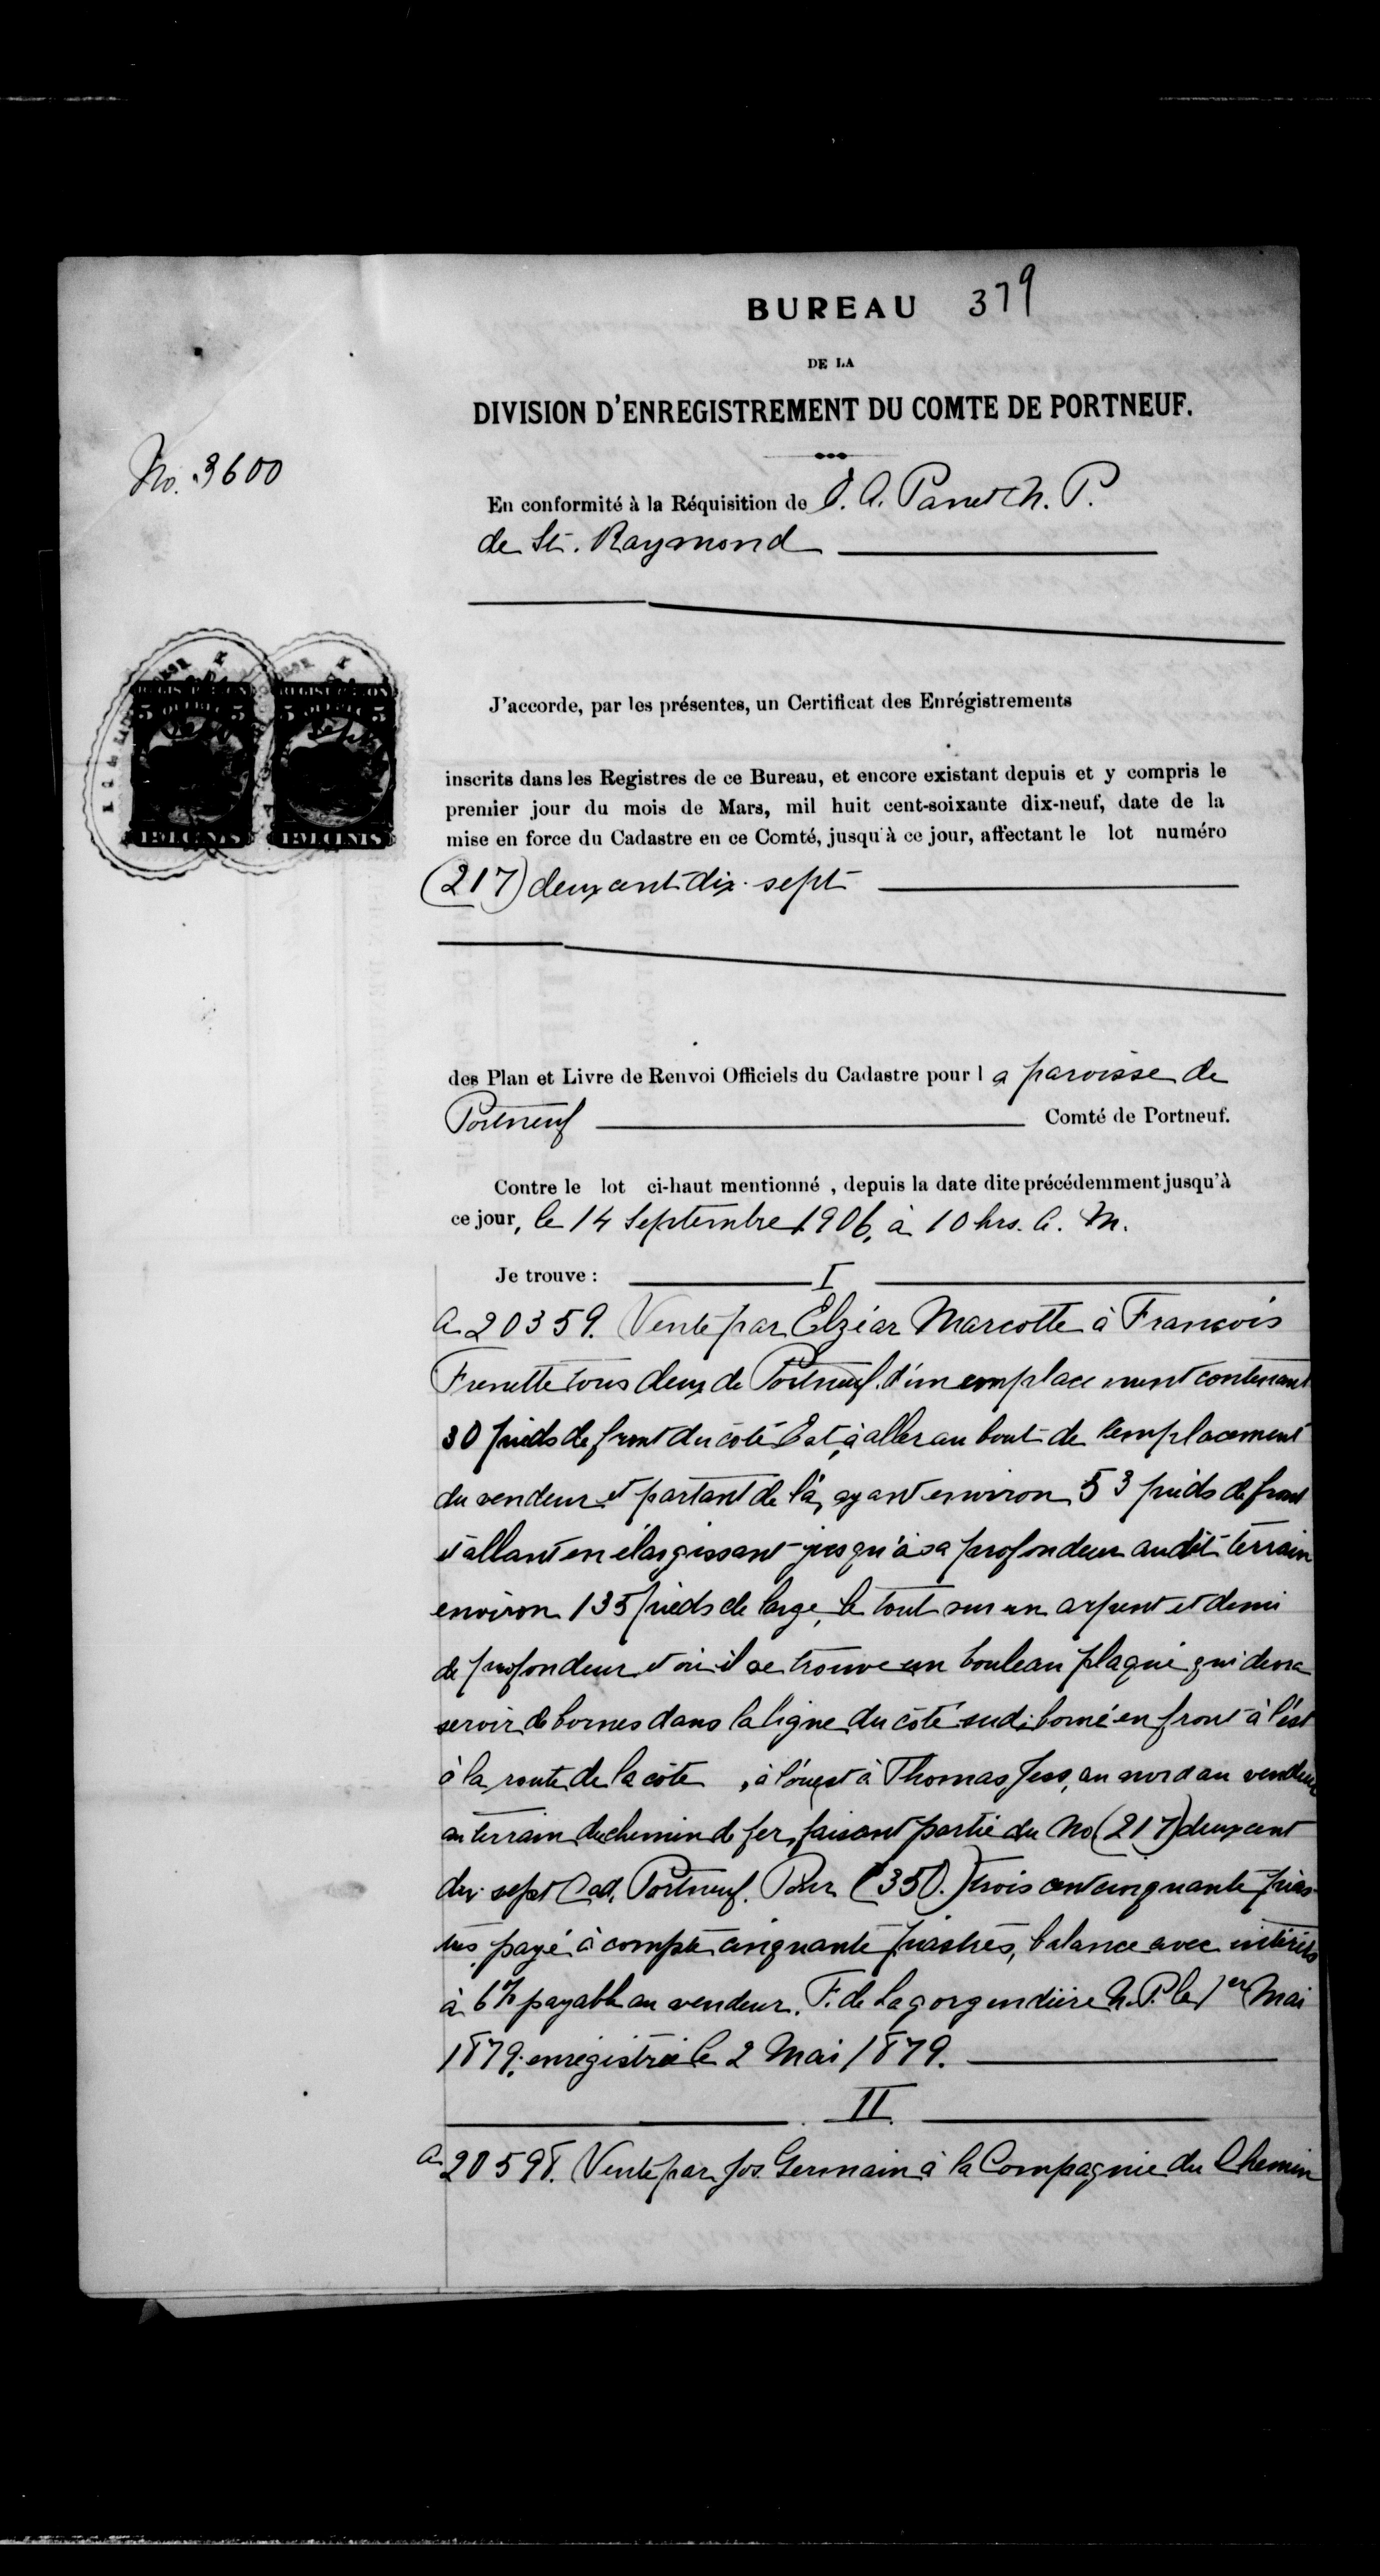 BUREAU 379
DE LA
DIVISION D'ENREGISTREMENT DU COMTE DE PORTNEUF.
No. 3600
En conformité à la Réquisition de J. A. Panet N. P.
de St. Raymond
J'accorde, par les présentes, un Certificat des Enrégistrements
inscrits dans les Registres de ce Bureau, et encore existant depuis et y compris le
premier jour du mois de Mars, mil huit cent-soixante dix-neuf, date de la
mise en force du Cadastre en ce Comté, jusqu'à ce jour, affectant le lot numéro
(217) deux cent dix-sept
des Plan et Livre de Renvoi Officiels du Cadastre pour la paroisse de
Portneuf Comté de Portneuf.
Contre le lot ci-haut mentionné , depuis la date dite précédemment jusqu'à
ce jour, le 14 Septembre 1906, à 10 hrs. A. M.
Je trouve : I
A 20359. Vente par Elzéar Marcotte à François
Frenette tous deux de Portneuf, d'un emplacement contenant
30 pieds de front du côté Est, à aller au bout de l'emplacement
du vendeur et partant de là, ayant environ 53 pieds de front
et allant en élargissant jusqu'à sa profondeur audit terrain
environ 135 pieds de large, le tout sur un arpent et demi
de profondeur et où il se trouve un bouleau plaqué qui devra
servir de bornes dans la ligne du côté sud; borné en front à l'est
à la route de la côte , à l'ouest à Thomas Jess, au nord au vendeur
au terrain du chemin de fer, faisant partie du No (217) deux cent
dix-sept Cad. Portneuf. Pour (350.) trois cent cinquante pias-
tres, payé à compte cinquante piastres, balance avec intérêts
à 6% payable au vendeur. F. de Lagorgendière N. P. le 1er Mai
1879; enregistrée le 2 Mai 1879.
II
A 20598. Vente par Jos. Germain à la Compagnie du Chemin